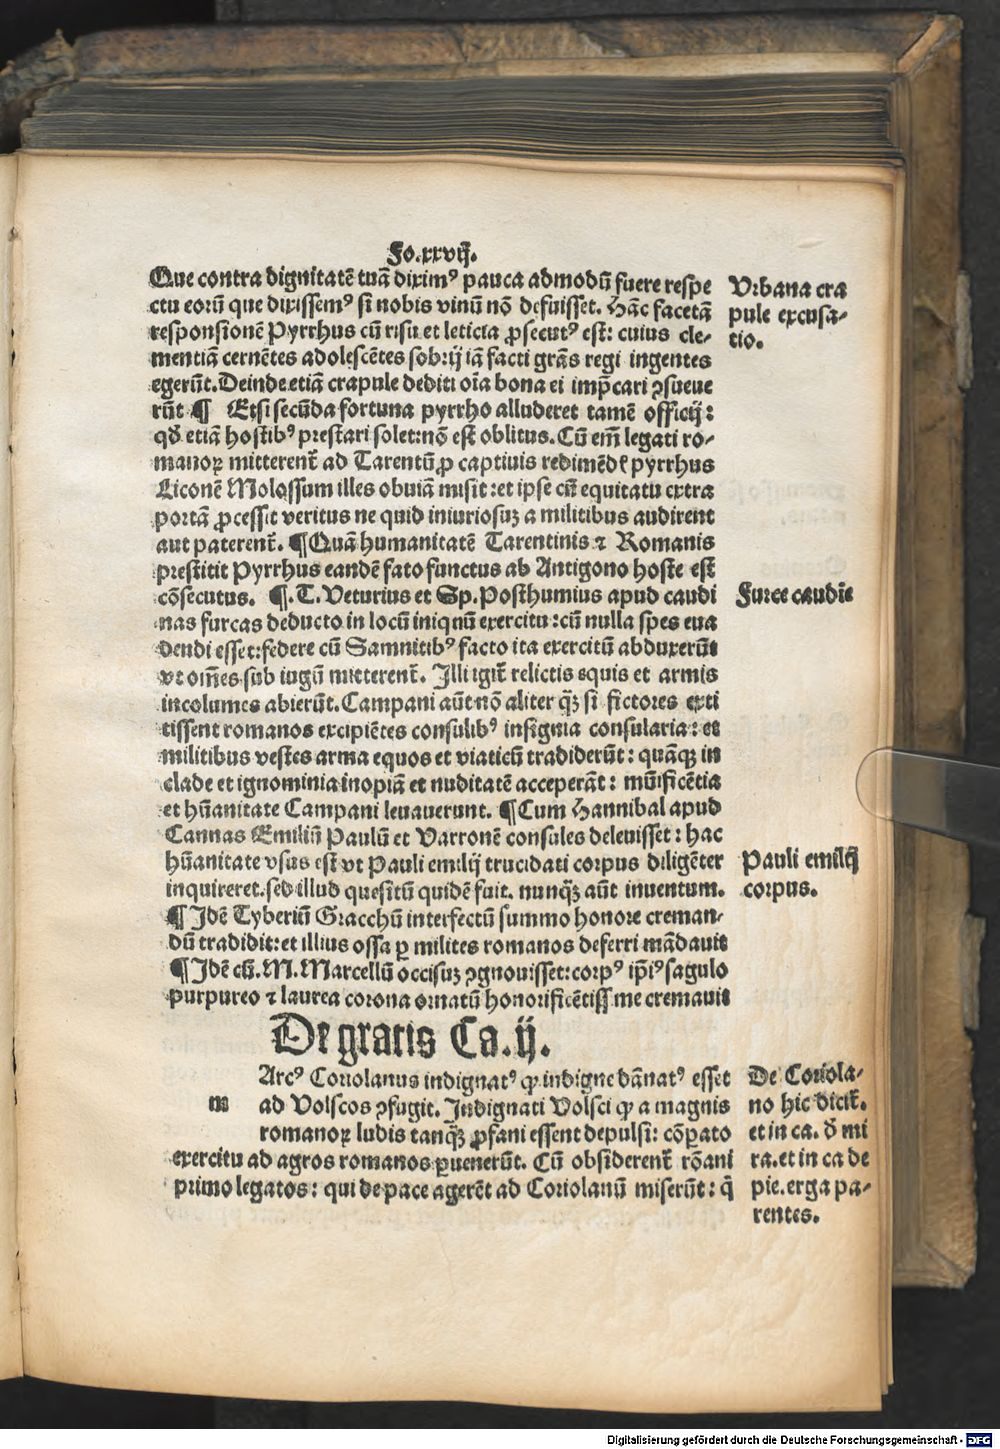 Fo.xxvij.
Que contra dignitatē tuā dixim⁹ pauca admodū fuere respe
ctu eorū que dixissem⁹ si nobis vinū nō defuisset. Hāc facetā
responsionē Pyrrhus cū risu et leticia ꝓsecut⁹ est: cuius cle-
mentiā cernētes adolescētes sobrij iā facti grās regi ingentes
egerūt. Deinde etiā crapule dediti oīa bona ei imp̄cari ꝯsueue
rūt ¶ Etsi secūda fortuna pyrrho alluderet tamē officij:
qđ etiā hostib⁹ prestari solet: nō est oblitus. Cū em̄ legati ro-
manoꝝ mitterent̄ ad Tarentū ꝓ captiuis redimēdꝭ pyrrhus
Liconē Molossum illes obuiā misit: et ipse cū equitatu extra
portā ꝓcessit veritus ne quid iniuriosuꝫ a militibus audirent
aut paterent̄. ¶ Quā humanitatē Tarentinis ⁊ Romanis
prestitit Pyrrhus eandē fato functus ab Antigono hoste est
cōsecutus. ¶. T. Veturius et Sp. Posthumius apud caudi
nas furcas deducto in locū iniquū exercitu: cū nulla spes eua
dendi esset: federe cū Samnitib⁹ facto ita exercitū abduxerūt
vt om̄es sub iugū mitterent̄. Illi igit̄ relictis equis et armis
incolumes abierūt. Campani aūt nō aliter q̄ꝫ si fictores exti
tissent romanos excipiētes consulib⁹ insignia consularia: et
militibus vestes arma equos et viaticū tradiderūt: quāqꝫ in
clade et ignominia inopiā et nuditatē acceperāt: mūificētia
et hūanitate Campani leuauerunt. ¶ Cum Hannibal apud
Cannas Emiliū Paulū et Varronē consules deleuisset: hac
hūanitate vsus est vt Pauli emilij trucidati corpus diligēter
inquireret. sed illud quesitū quidē fuit. nunq̄ꝫ aūt inuentum.
¶ Idē Tyberiū Gracchū interfectū summo honore creman-
dū tradidit: et illius ossa ꝑ milites romanos deferri mādauit
¶ Idē cū. M. Marcellū occisuꝫ ꝯgnouisset: corp⁹ ip̄i⁹ sagulo
purpureo ⁊ laurea corona ornatū honorificētissime cremauit
De gratis Ca. ij.
m Arc⁹ Coriolanus indignat⁹ ꝙ indigne dānat⁹ esset
ad Volscos ꝯfugit. Indignati Volsci ꝙ a magnis
romanoꝝ ludis tanq̄ꝫ ꝓfani essent depulsi: cōꝑato
exercitu ad agros romanos ꝑuenerūt. Cū obsiderent̄ rōani
primo legatos: qui de pace agerēt ad Coriolanū miserūt: q̄
Vrbana cra
pule excusa-
tio.
Furce caudīe
Pauli emilij
corpus.
De Coriola-
no hic dicit̄.
et in ca. đ mi
ra. et in ca de
pie. erga pa-
rentes.
Digitalisierung gefördert durch die Deutsche Forschungsgemeinschaft - DFG